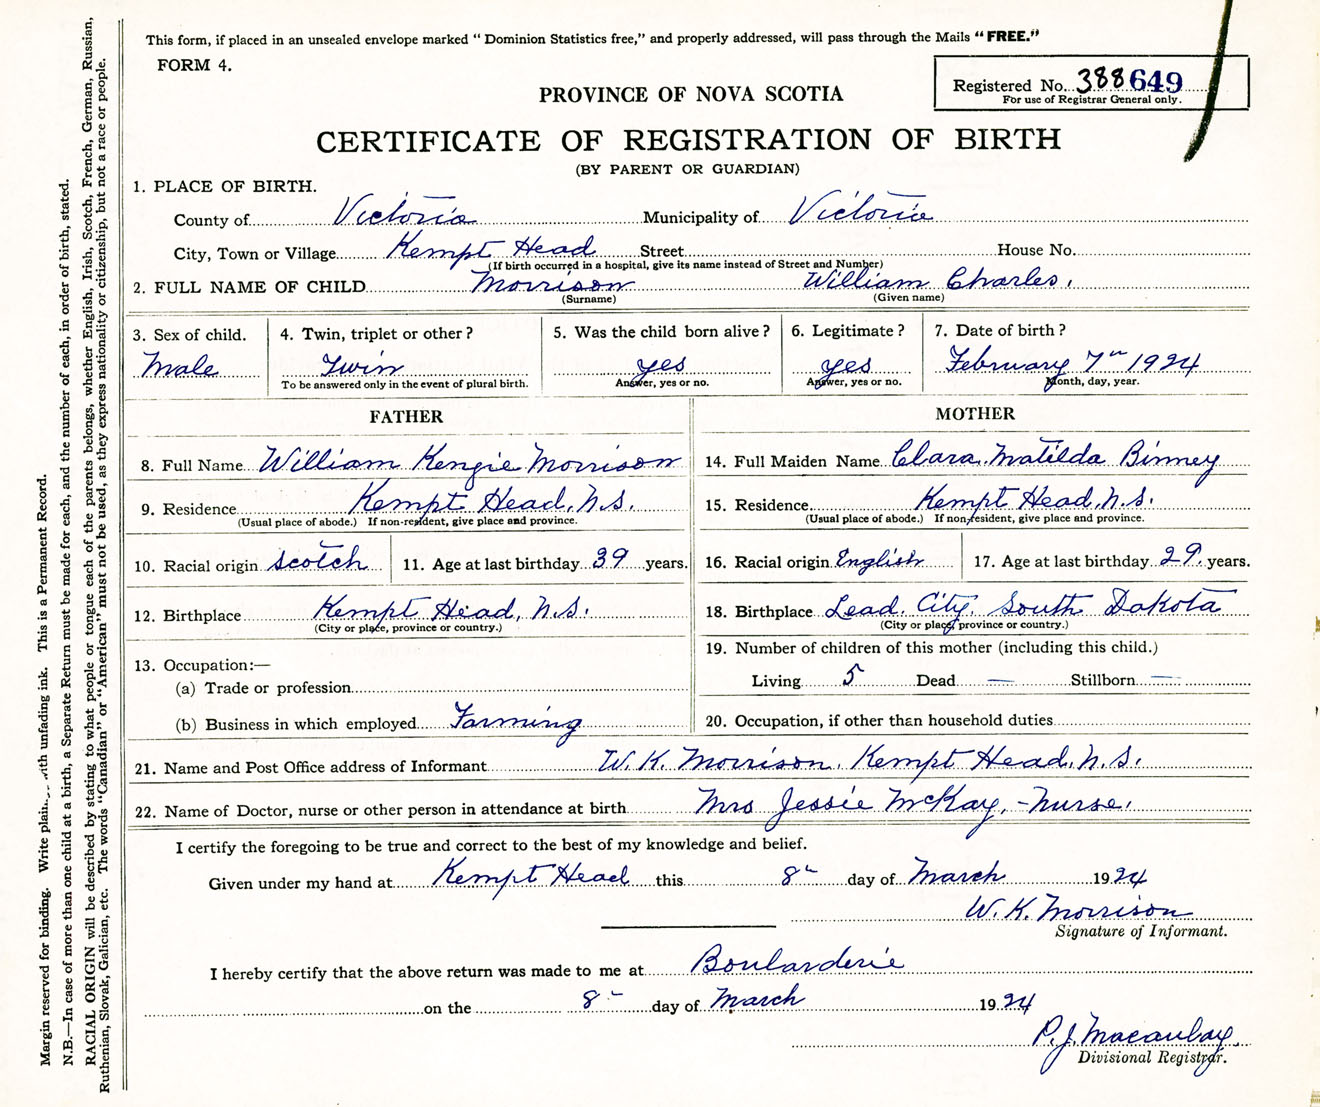 This form, if placed in an unsealed envelope marked "Dominion Statistics free," and properly addressed, will pass through the Mails "FREE."
FORM 4.
Registered No. 388649
For use of Registrar General only.
PROVINCE OF NOVA SCOTIA
CERTIFICATE OF REGISTRATION OF BIRTH
(BY PARENT OR GUARDIAN)
1. PLACE OF BIRTH.
County of Victoria Municipality of Victoria
City, Town or Village Kempt Head Street House No.
(If birth occurred in a hospital, give its name instead of Street and Number)
2. FULL NAME OF CHILD Morrison William Charles.
(Surname) (Given name)
3. Sex of child. 4. Twin, triplet or other? 5. Was the child born alive? 6. Legitimate? 7. Date of birth?
Male Twin yes yes February 7th 1924
To be answered only in the event of plural birth. Answer, yes or no. Answer, yes or no. Month, day, year.
FATHER MOTHER
8. Full Name William Kengie Morrison 14. Full Maiden Name Clara Matilda Binney
9. Residence Kempt Head, N.S. 15. Residence Kempt Head, N.S.
(Usual place of abode.) If non-resident, give place and province. (Usual place of abode.) If non-resident, give place and province.
10. Racial origin Scotch 11. Age at last birthday 39 years. 16. Racial origin English 17. Age at last birthday 29. years.
12. Birthplace Kempt Head, N.S. 18. Birthplace Lead City South Dakota
(City or place, province or country.) (City or place, province or country.)
13. Occupation:— 19. Number of children of this mother (including this child.)
(a) Trade or profession Living 5 Dead — Stillborn —
(b) Business in which employed Farming 20. Occupation, if other than household duties
21. Name and Post Office address of Informant W. K. Morrison, Kempt Head, N.S.
22. Name of Doctor, nurse or other person in attendance at birth Mrs Jessie McKay, -Nurse.
I certify the foregoing to be true and correct to the best of my knowledge and belief.
Given under my hand at Kempt Head this 8th day of March 1924
W. K. Morrison
Signature of Informant.
I hereby certify that the above return was made to me at Boularderie
on the 8th day of March 1924
P.J. Macaulay
Divisional Registrar.
Margin reserved for binding. Write with unfading ink. This is a Permanent Record.
N.B.—In case of more than one child at a birth, a Separate Return must be made for each, and the number of each, in order of birth, stated.
RACIAL ORIGIN will be described by stating to what people or tongue each of the parents belongs, whether English, Irish, Scotch, French, German, Russian,
Ruthenian, Slovak, Galician, etc. The words "Canadian" or "American" must not be used, as they express nationality or citizenship, but not a race or people.